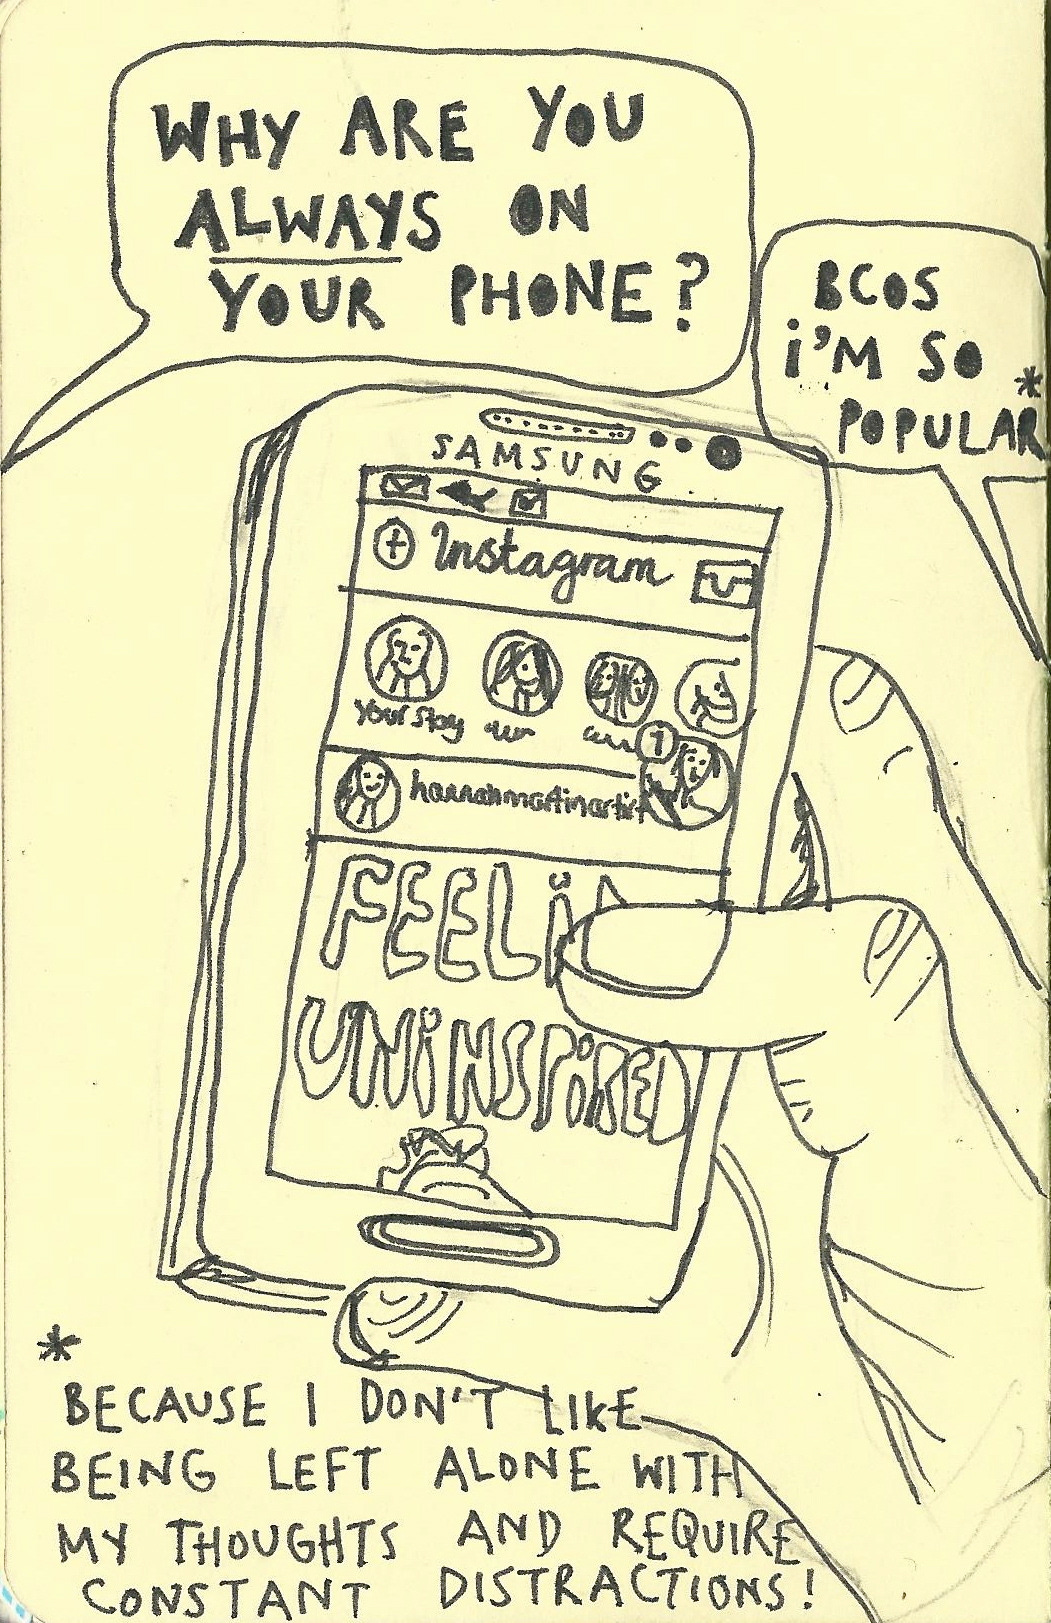 WHY ARE YOU
ALWAYS ON
YOUR PHONE?
BCOS
i'M SO
POPULAR*
SAMSUNG
Instagram
your story
1
hannahmartinartist
FEELiN
UNiNSPiRED
*
BECAUSE I DON'T LIKE
BEING LEFT ALONE WITH
MY THOUGHTS AND REQUIRE
CONSTANT DISTRACTIONS!